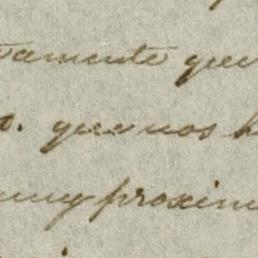 vamente que
o. que nos h
muy proxim